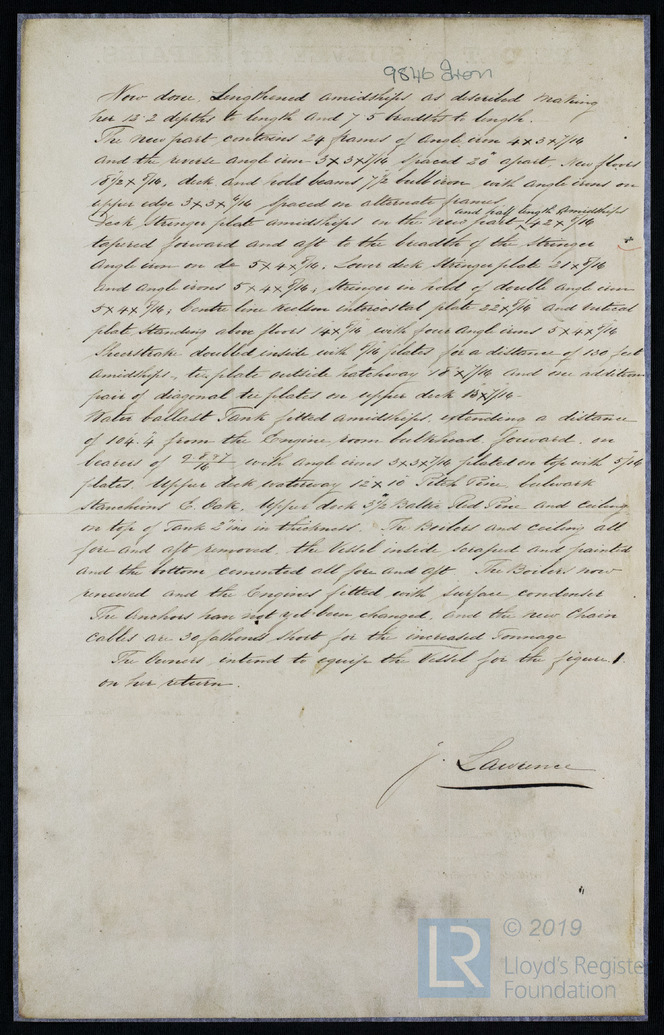 9846 Iron
Now done, Lengthened amidships as described making
her 12.2 depths to length and 7.5 breadths to length.
The new part contains 24 frames of angle iron 4x3x7/16
and the reverse angle iron 3x3x7/16 spaced 20" apart, New floors
18 1/2 x 8/16, deck and hold beams 7 1/2 bulb iron, with angle irons on
upper edge 3x3x6/16 spaced on alternate frames.
and half length Amidships
Deck Stringer plate amidships in the new part 42 x 7/16
tapered forward and aft to the breadth of the Stringer
Angle iron on do 5x4x8/16. Lower deck Stringer plate 21x8/16
and Angle irons 5x4x8/16, Stringer in hold of double Angle iron
5x4x8/16; Centre line Keelson intercostal plate 22x8/16 and vertical
plate Standing above floors 14x9/16 with four Angle irons 5x4x9/16
Sheerstrake doubled inside with 8/16 plates for a distance of 130 feet
Amidships, tie plate outside hatchway 18x7/16 and one addition
pair of diagonal tie plates on upper deck 13x7/16.
Water ballast Tank fitted amidships extending a distance
of 104.4 from the Engine room bulkhead forward on
bearers of 9.8 &7/16 with Angle irons 3x3x7/16 plated on top with 5/16
plates. Upper deck waterway 12x10 Pitch Pine bulwark
Stanchions E. Oak. Upper deck 3 1/2 Baltic Red Pine and ceiling
on top of Tank 2 ins in thickness. The Boilers and ceiling all
fore and aft removed, the Vessel inside scraped and painted
and the bottom cemented all fore and aft. The Boilers now
renewed and the Engines fitted with Surface condenser
The Anchors have not yet been changed, and the new Chain
Cables are 30 fathoms Short for the increased Tonnage
The Owners intend to equip the Vessel for the figure 1
on her return.
J. Lawrence
LR
© 2019
Lloyd's Register
Foundation